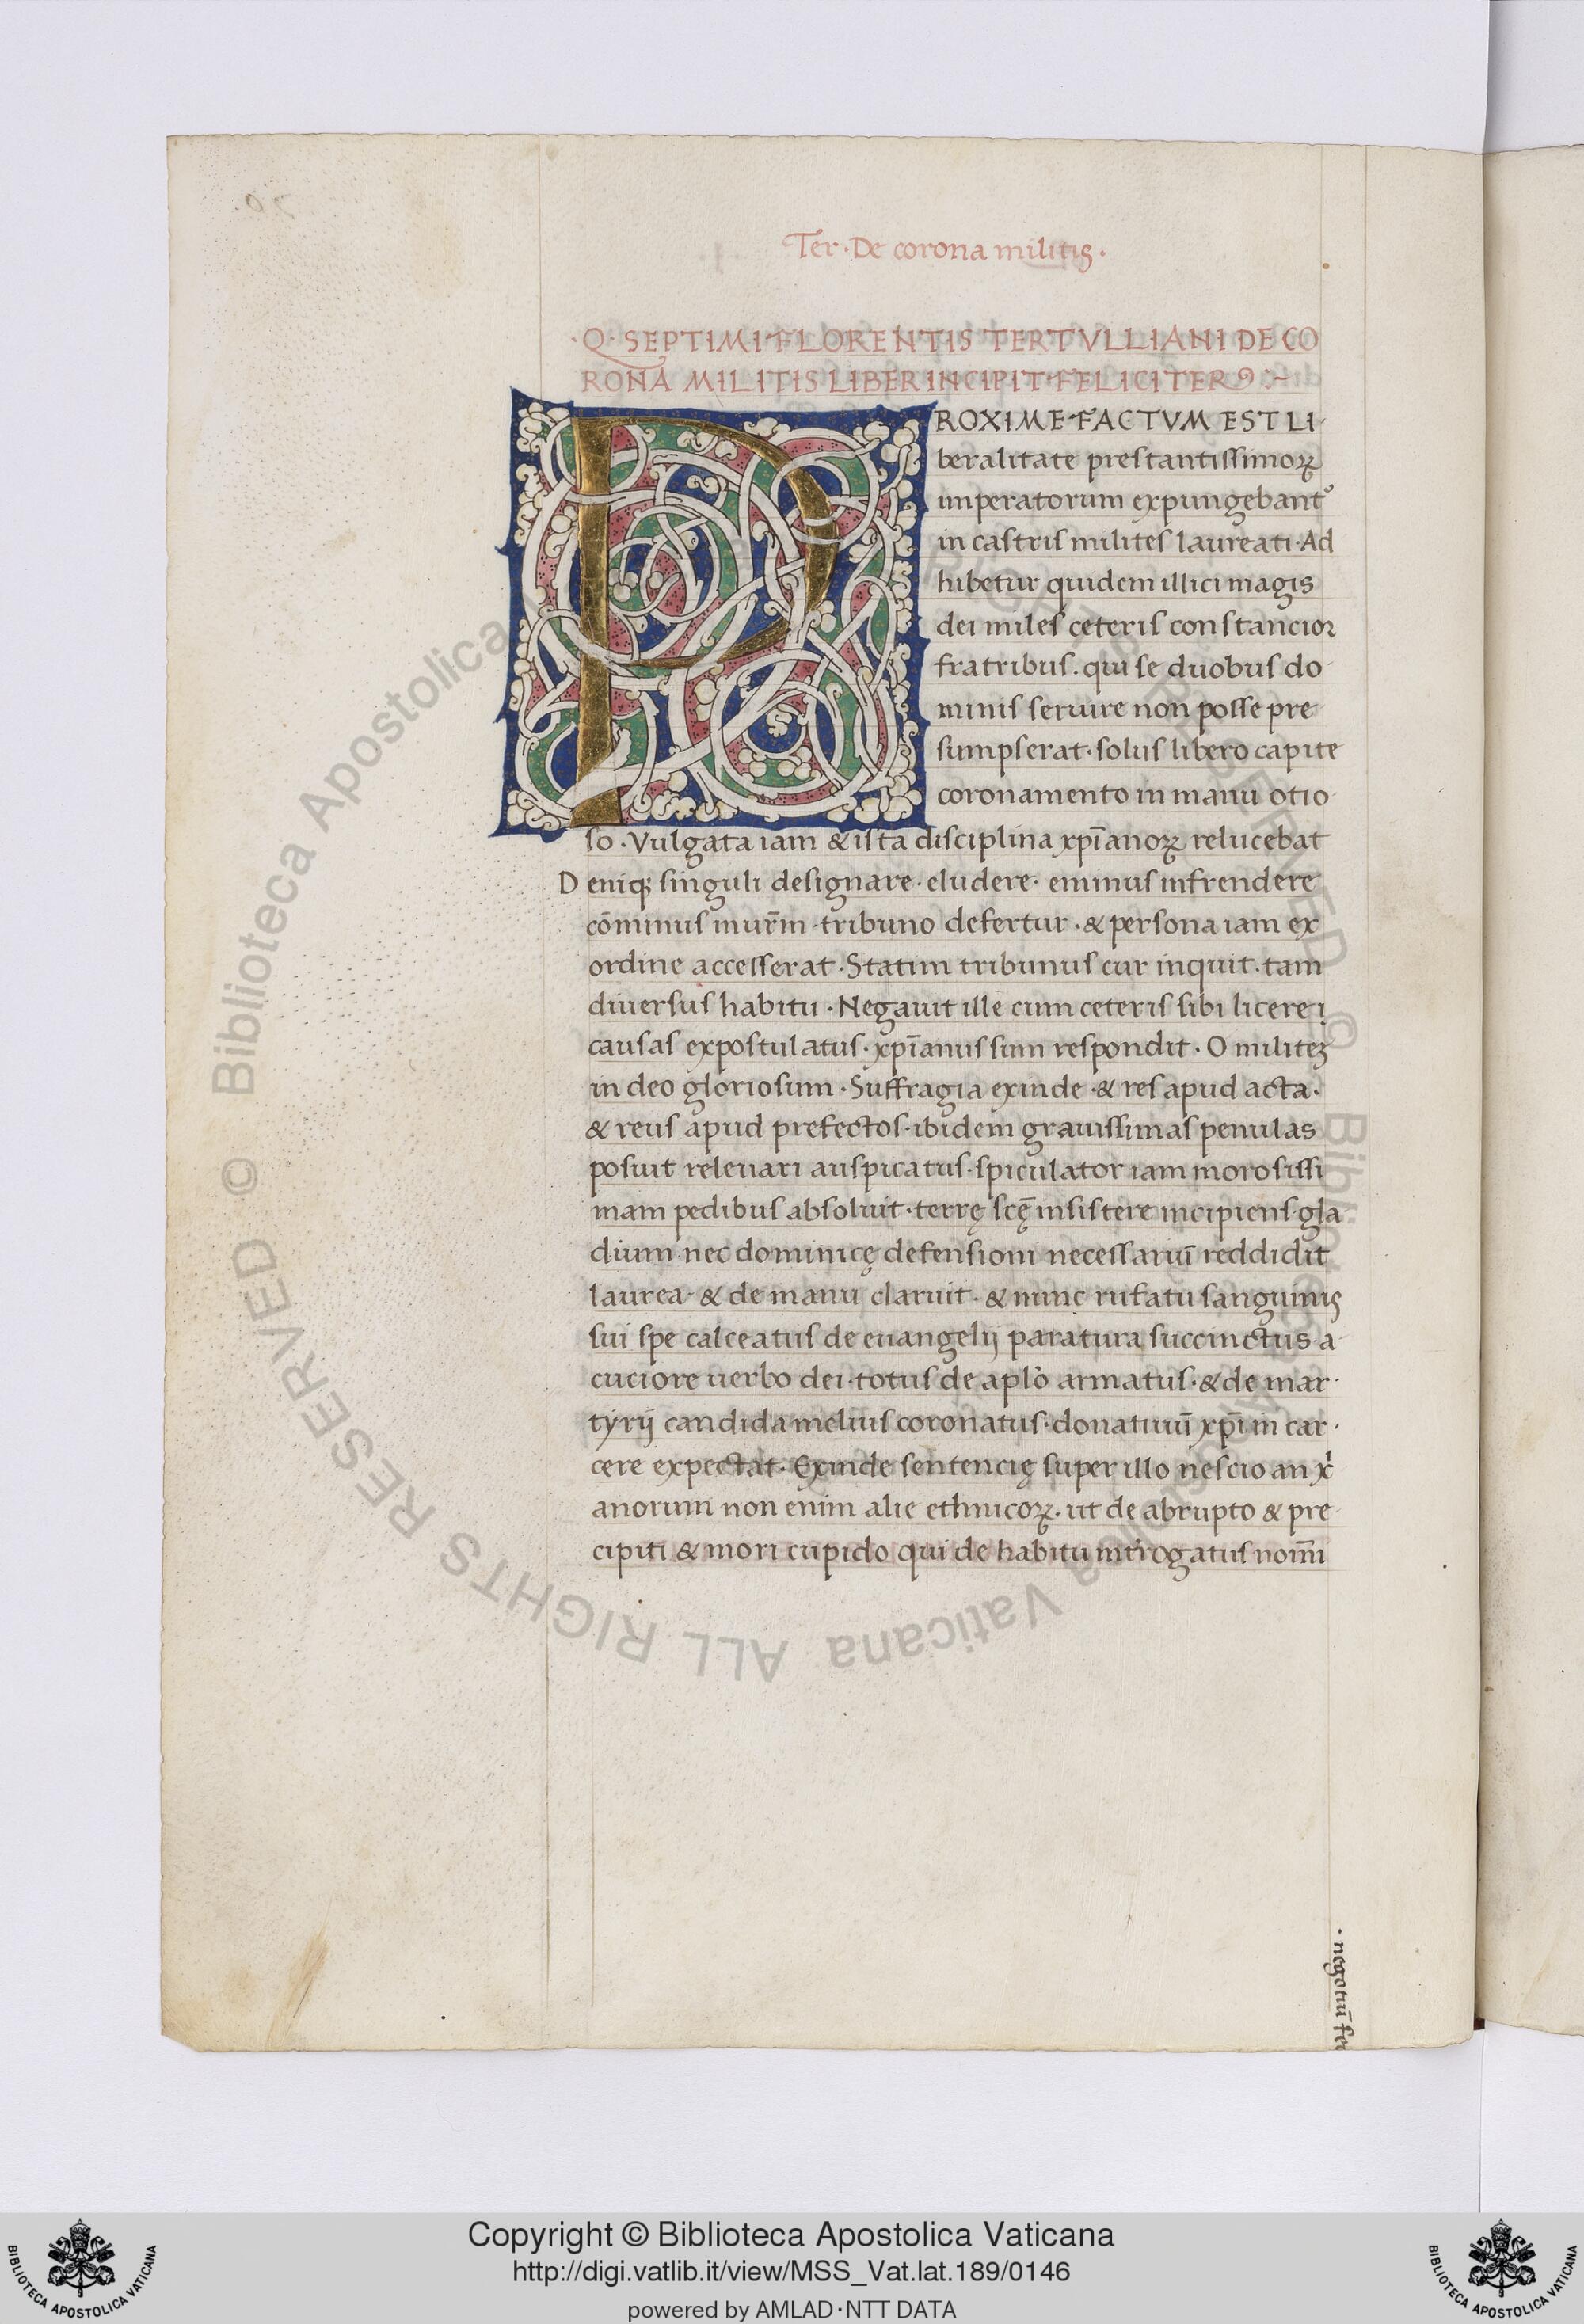 Ter · De corona militis ·
· Q · SEPTIMI · FLORENTIS TERTVLLIANI DE CO
RONA MILITIS LIBER INCIPIT · FELICITER
PROXIME · FACTVM EST LI·
beralitate prestantissimoꝝ
imperatorum expungebant᾿
in castris milites laureati · Ad
hibetur quidem illici magis
dei miles ceteris constancior
fratribus . qui se duobus do·
minis seruire non posse pre·
sumpserat · solus libero capite
coronamento in manu otio·
so · Vulgata iam & ista disciplina xp̄ianoꝝ relucebat
Deniqꝫ singuli designare · eludere · eminus infrendere
cōminus mur̄m · tribuno defertur · & persona iam ex
ordine accesserat · Statim tribunus cur inquit · tam
diuersus habitu · Negauit ille cum ceteris sibi licere i
causas expostulatus · xp̄ianus sum respondit · O militeꝫ
in deo gloriosum · Suffragia exinde · & res apud acta ·
& reus apud prefectos · ibidem grauissimas penulas
posuit releuari auspicatus · spiculator iam morosissi
mam pedibus absoluit · terrę scę̄ insistere incipiens · gla
dium nec dominicę defensioni necessariū reddidit
laurea · & de manu claruit · & nunc rufatu sanguinis
sui spe calceatus de euangelij paratura succinctus · a·
cuciore uerbo dei · totus de aplo᾿ armatus · & de mar·
tyrij candida melius coronatus · donatiuū xp̄i in car·
cere expectat · Exinde sentencię super illo nescio an x᾿
anorum non enim alie ethnicoꝝ · ut de abrupto & pre·
cipiti & mori cupido qui de habitu int᾿rogatus nom̄i
· negotiū fe
© Biblioteca Apostolica Vaticana ALL RIGHTS RESERVED
Copyright © Biblioteca Apostolica Vaticana
http://digi.vatlib.it/view/MSS_Vat.lat.189/0146
powered by AMLAD·NTT DATA
BIBLIOTECA APOSTOLICA VATICANA
BIBLIOTECA APOSTOLICA VATICANA